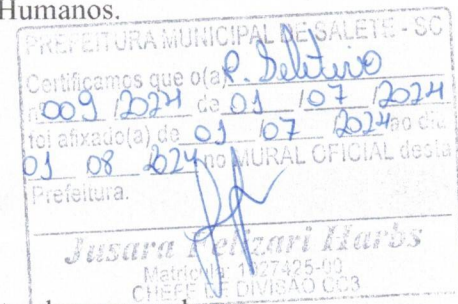 Humanos.
PREFEITURA MUNICIPAL DE SALETE - SC
Certificamos que o(a) P. Seletivo
nº 009 /2024 de 01 /07 /2024
foi afixado(a) de 01 /07 /2024 ao dia
01 08 2024 no MURAL OFICIAL desta
Prefeitura.
Jusara Pelizari Harbs
Matrícula: 1027425-00
CHEFE DE DIVISÃO CC3